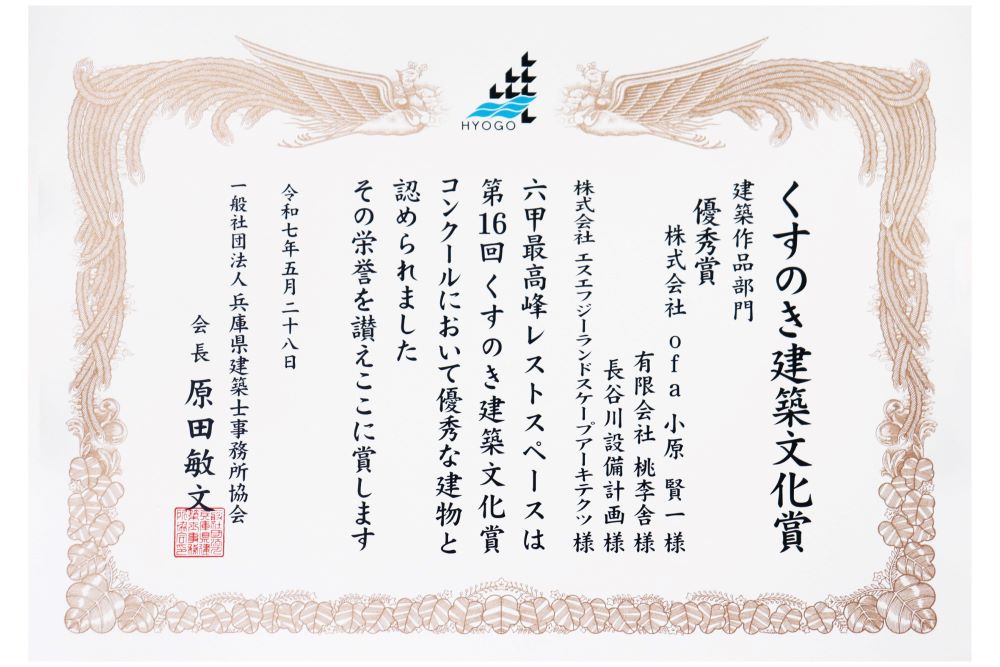 HYOGO
くすのき建築文化賞
建築作品部門
優秀賞
株式会社 ofa 小原 賢一 様
有限会社 桃李舎 様
長谷川設備計画 様
株式会社 エスエフジーランドスケープアーキテクツ 様
六甲最高峰レストスペースは
第16回くすのき建築文化賞
コンクールにおいて優秀な建物と
認められました
その栄誉を讃えここに賞します
令和七年五月二十八日
一般社団法人 兵庫県建築士事務所協会
会長 原田敏文